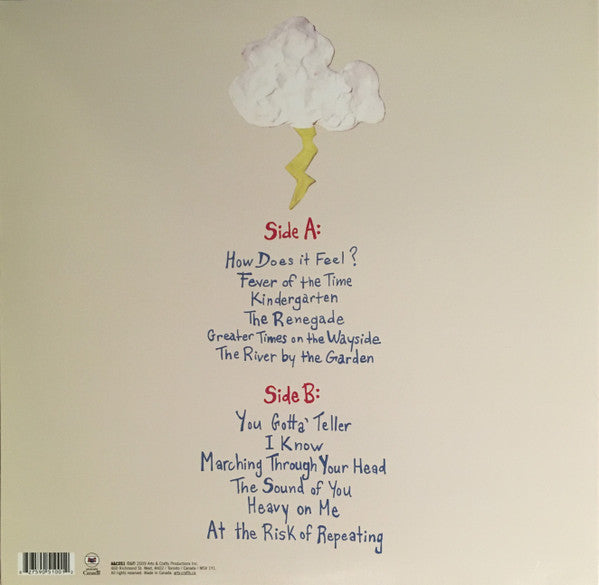 Side A:
How Does it Feel?
Fever of the Time
Kindergarten
The Renegade
Greater Times on the Wayside
The River by the Garden
Side B:
You Gotta' Teller
I Know
Marching Through Your Head
The Sound of You
Heavy on Me
At the Risk of Repeating
2009 Arts & Crafts Productions Inc.
Richmond St. West, #402 / Toronto / Canada /
All rights reserved. Made in Canada. arts-crafts.ca
Canada